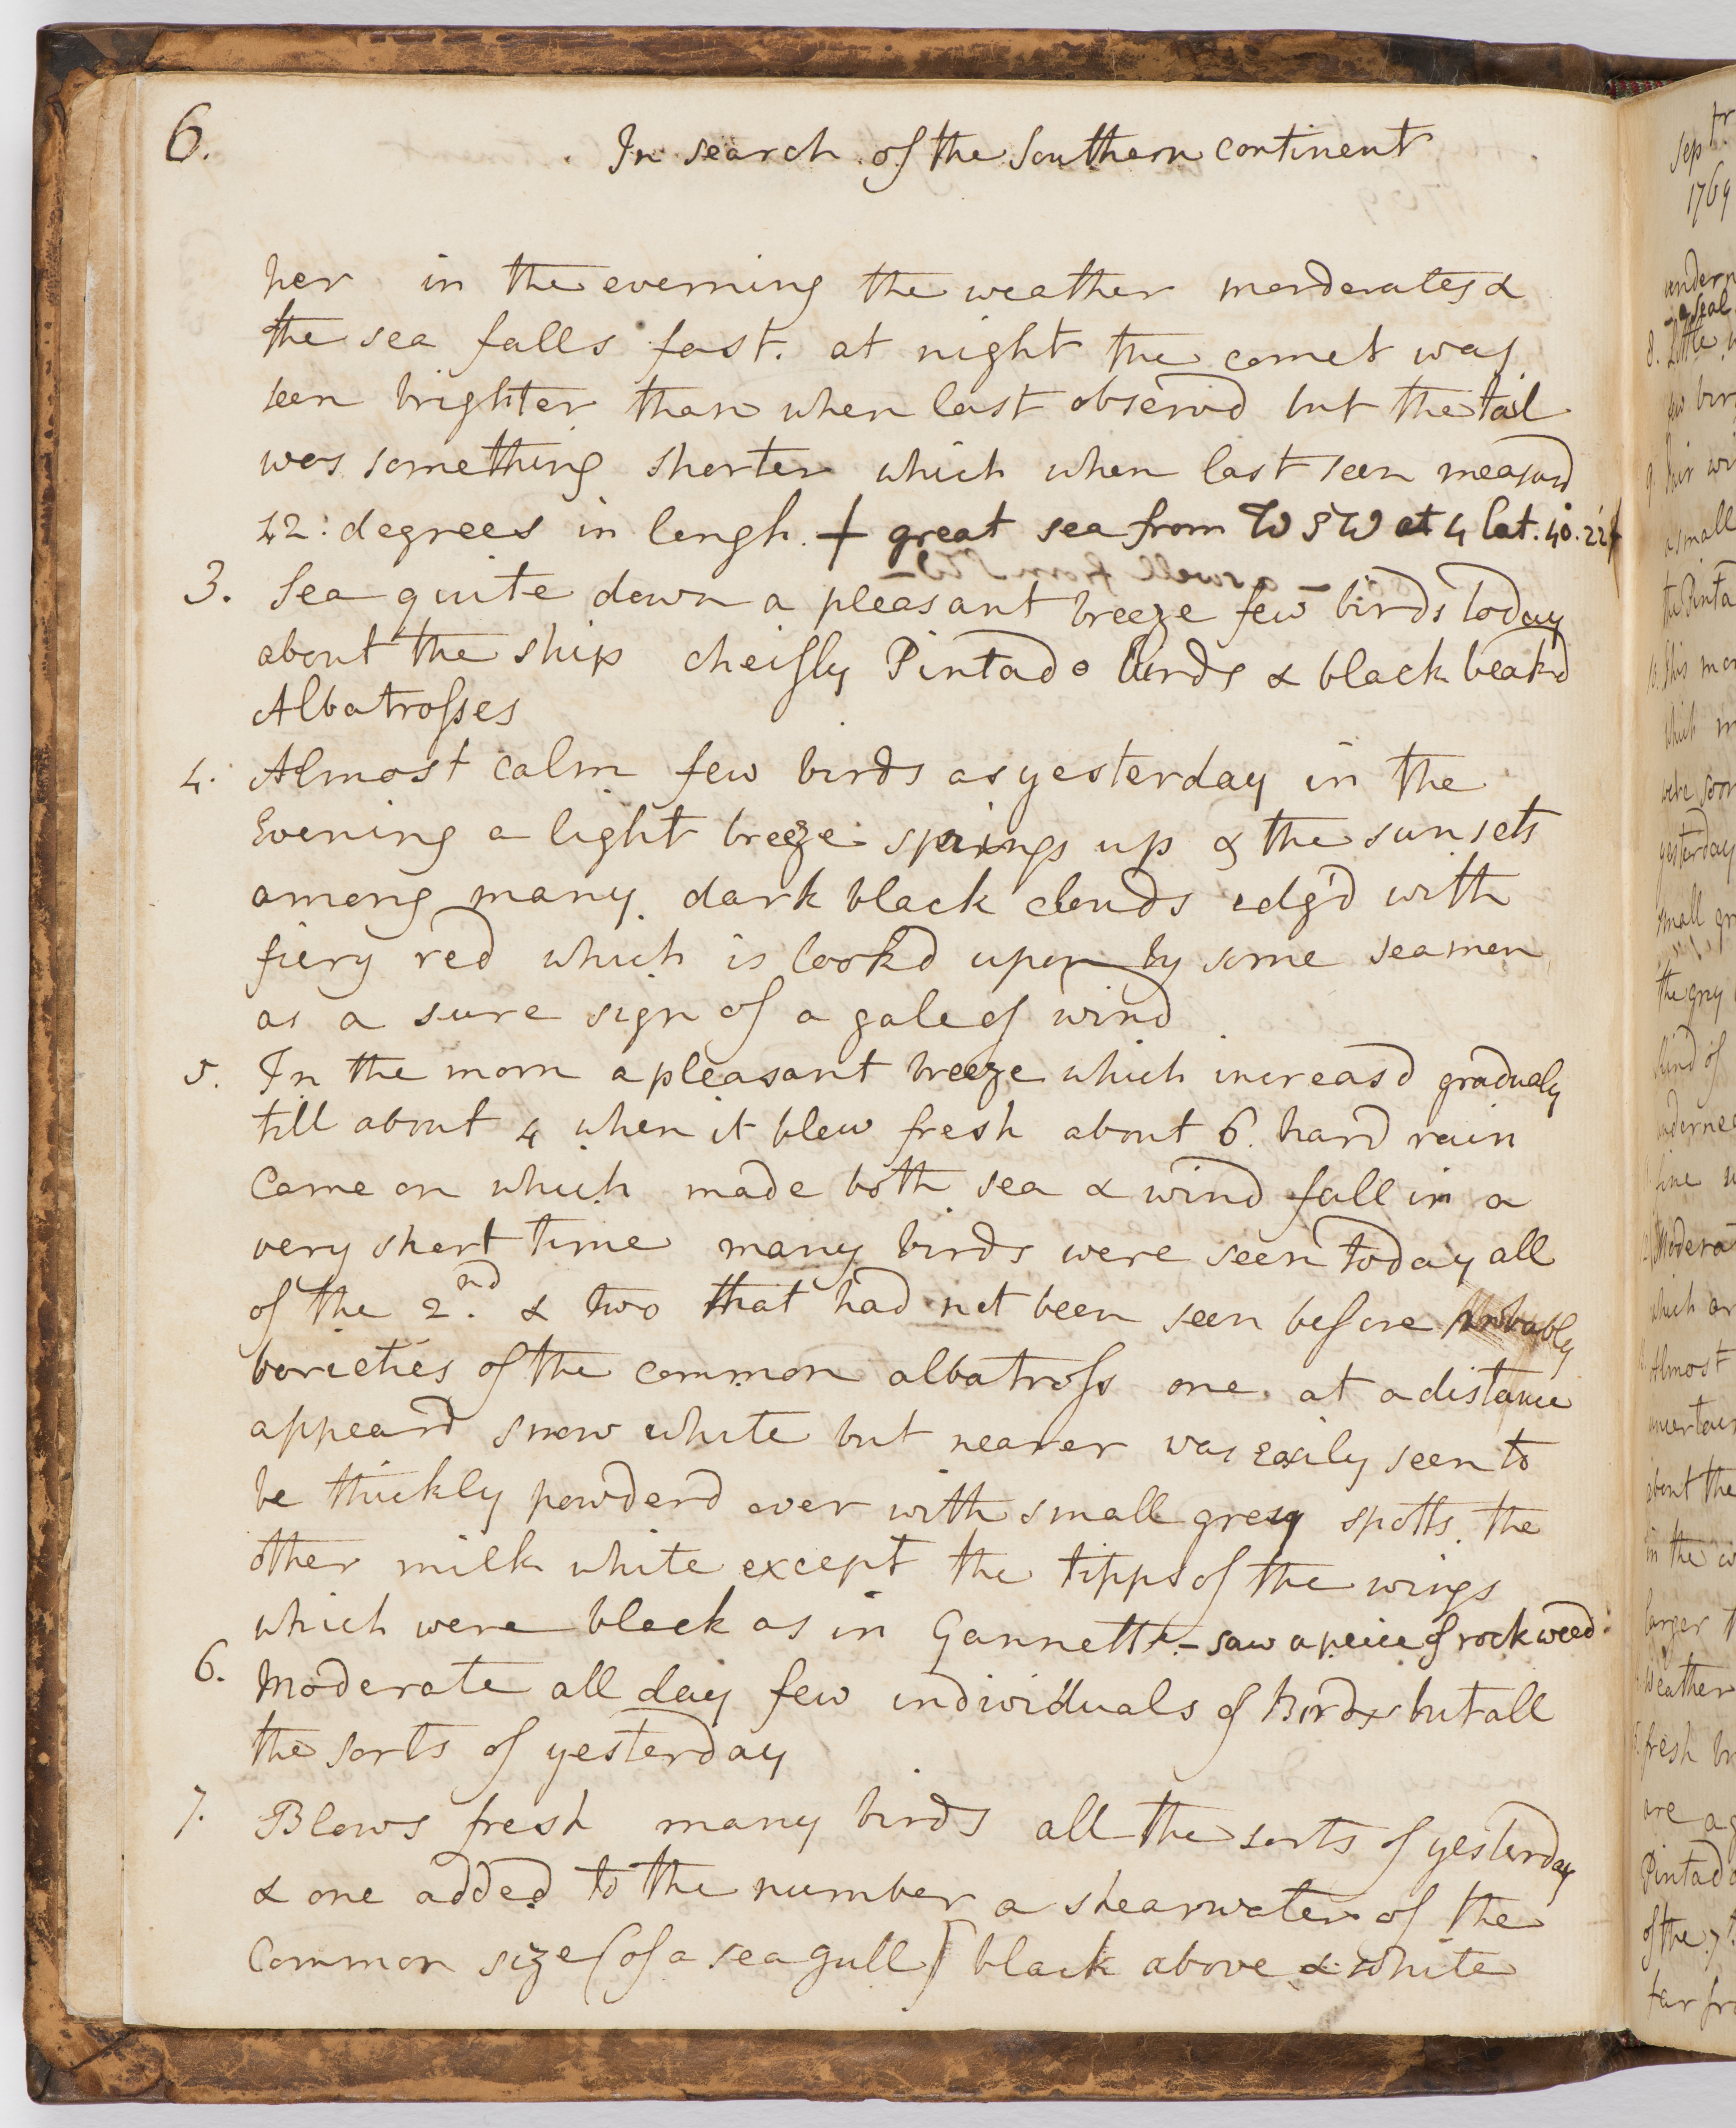 6.
In search of the Southern continent
her in the evening the weather morderates &
the sea falls fast. at night the comet was
seen brighter than when last observd but the tail
was something shorter which when last seen measurd
42: degrees in lengh. + great sea from W S W at 4 lat. 40. 22 +
3. Sea quite down a pleasant breeze few birds today
about the ship cheifly Pintado birds & black beakd
Albatrosses
4. Almost calm few birds as yesterday in the
Evening a light breeze springs up & the sun sets
among many dark black clouds edg'd with
fiery red which is lookd upon by some seamen
as a sure sign of a gale of wind
5. In the morn a pleasant breeze which increasd gradualy
till about 4 when it blew fresh about 6. hard rain
Came on which made both sea & wind fall in a
very short time many birds were seen today all
of the 2.nd & two that had not been seen before probably
varieties of the common albatross one at a distance
appeard snow white but nearer was easily seen to
be thickly powderd over with small grey spotts the
other milk white except the tipps of the wings
which were black as in Gannetts - saw a peice of rock weed.
6. Moderate all day few individuals of Birds but all
the sorts of yesterday
7. Blows fresh many birds all the sorts of yesterday
& one added to the number a shearwater of the
Common size (of a sea gull) black above & white
Sepbr
1769
undern
a seal
8. Little
few bir
9. Fair wi
a small
the Pinta
10. This mor
which
were soon
yesterday
small gr
the grey
kind of
undernea
fine
12. Modera
which ar
Almost
uncertain
about the
in the
larger
Weather
fresh br
are ag
Pintado
of the 7th
far fro